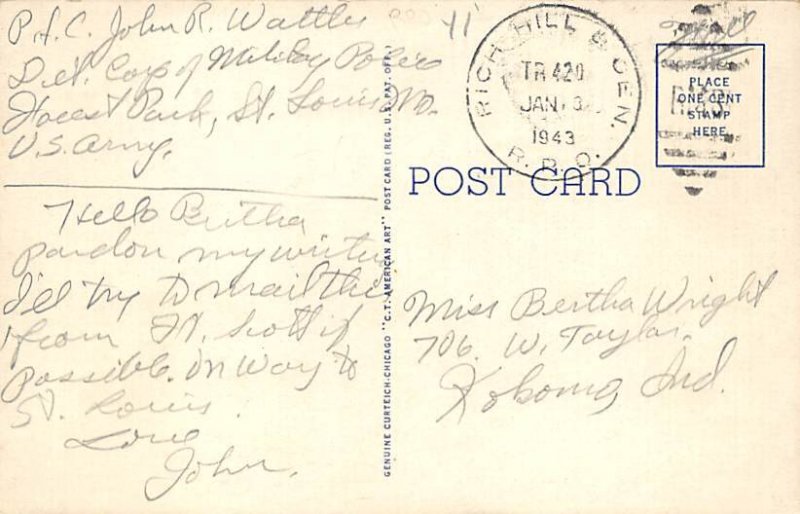 P.f.C. John R. Wattles
Det. Corp of Military Police
Forest Park, St. Louis Mo.
U.S. Army.
Hello Bertha
pardon my writing
I'll try to mail this
from Ft. Scott if
possible. On way to
St. Louis.
Love
John.
GENUINE CURTEICH-CHICAGO "C.T. AMERICAN ART" POST CARD (REG. U.S. PAT. OFF.)
RICH HILL & CEN.
TR 420
JAN 3
1943
R.P.O.
PLACE
ONE CENT
STAMP
HERE
POST CARD
Miss Bertha Wright
706. W. Taylor.
Kokomo, Ind.